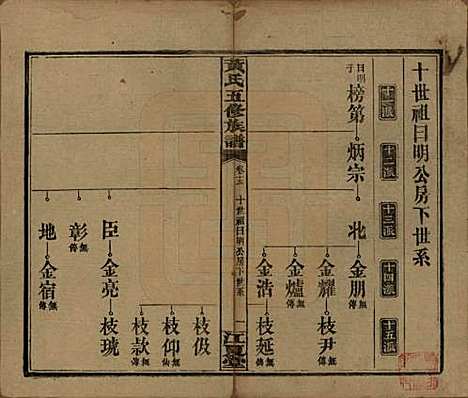 十世祖日明公房下世系
十一派
十二派
十三派
十四派
十五派
日明子
榜第
炳宗
北
金朋
無傳
金耀
枝尹
無傳
金爐
無傳
金浩
枝延
無傳
黃氏五修族譜
卷十五
十世祖日明公房下世系
江夏堂
枝伋
枝仰
無仙
枝款
無傳
臣
金亮
枝琥
彰
無傳
地
金宿
無傳